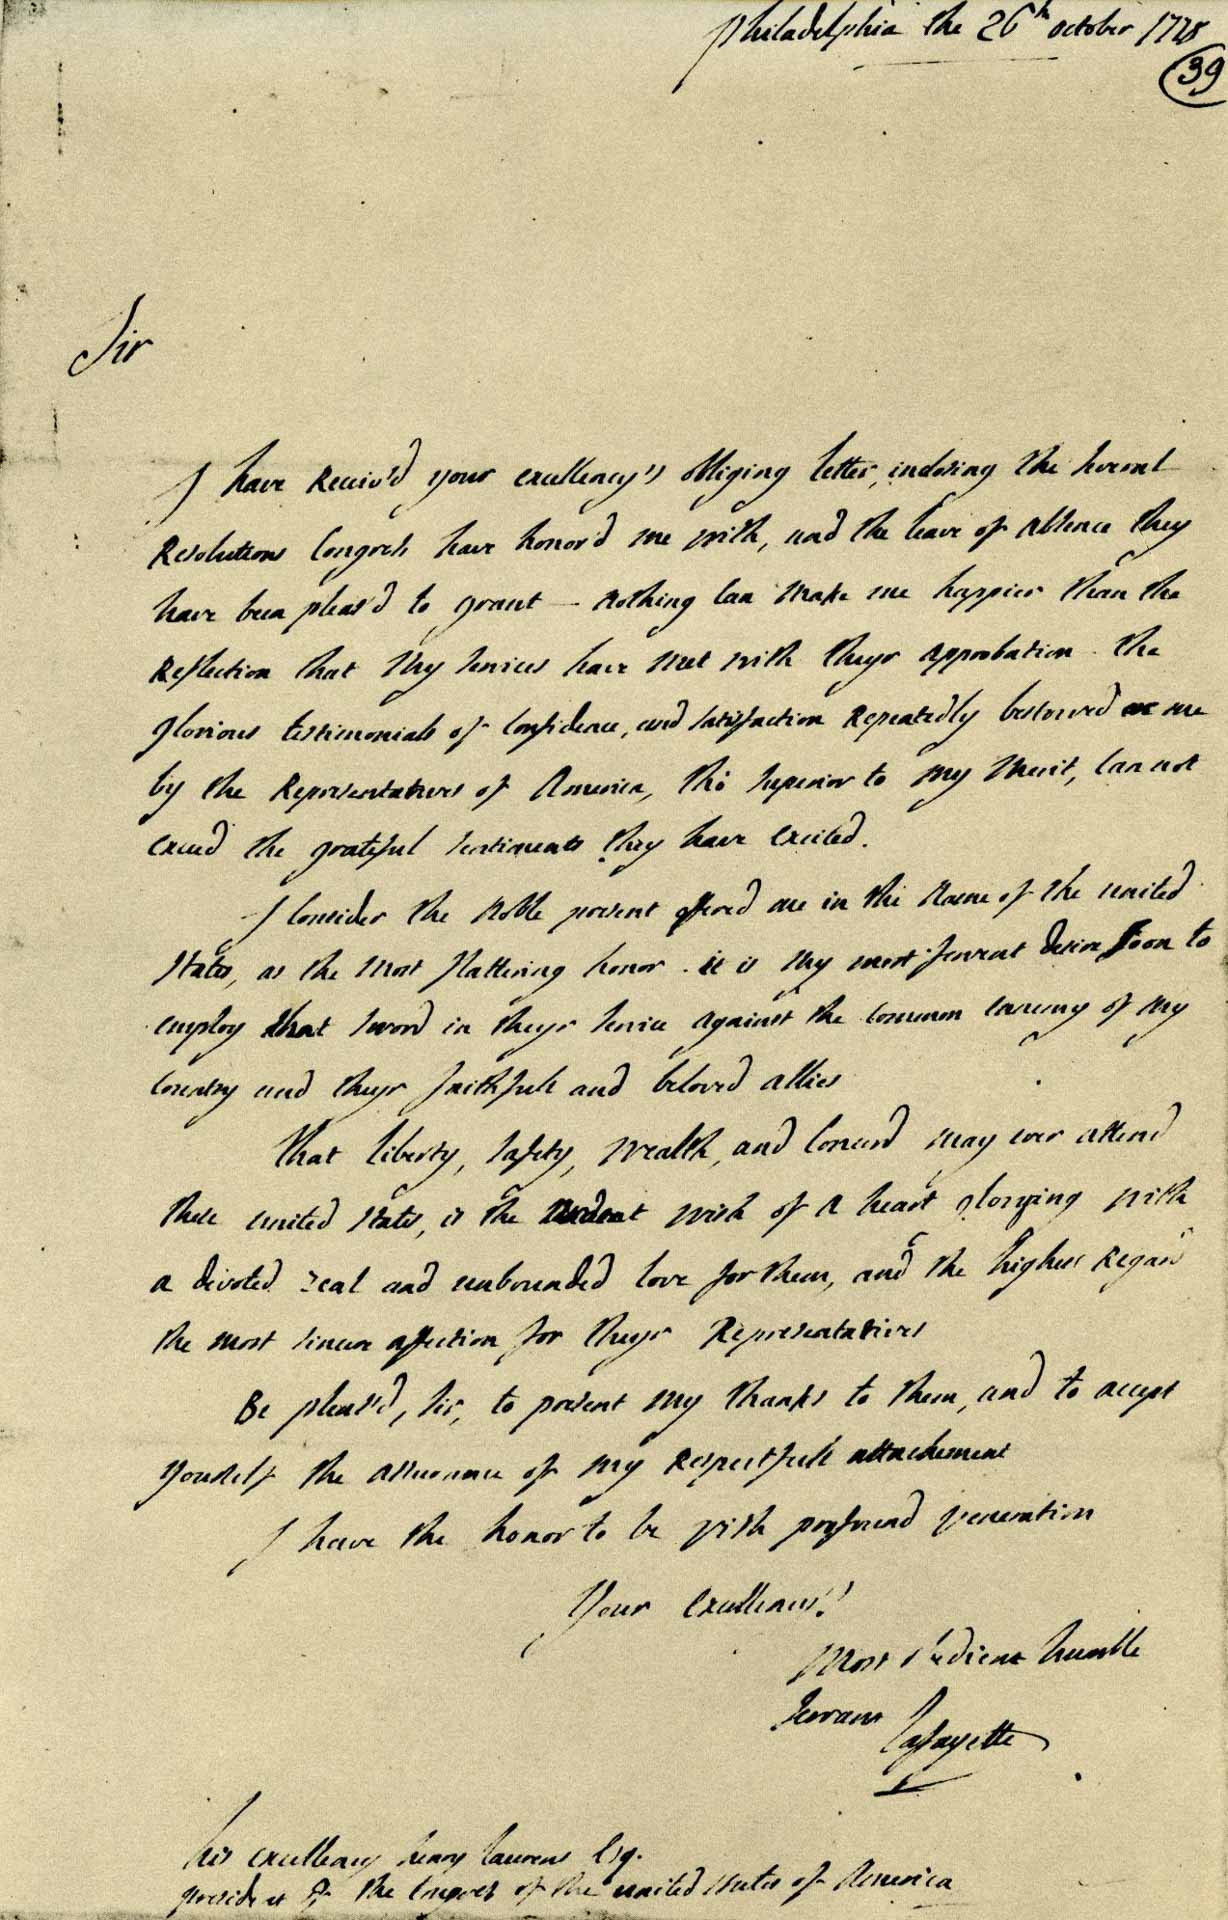 Philadelphia the 26th october 1778
39
Sir
I have Receiv'd your excellency's obliging letter, inclosing the several
Resolutions Congress have honor'd me with, and the leave of absence they
have been pleas'd to grant — Nothing Can Make me happier than the
Reflection that My services have Met with theyr Approbation. the
glorious testimonials of Confidence, and satisfaction Repeatedly bestowed on me
by the Representatives of America, tho' superior to My Merit, Can not
exceed the grateful sentiments they have excited.
I Consider the Noble present offered me in the Name of the united
States, as the Most flattering honor. it is My most fervent desire Soon to
employ that sword in theyr service against the Common ennemy of My
Country and theyr faithfull and beloved allies
That liberty, safety, wealth, and Concord may ever attend
these united States, is the ardent wish of a heart glowing with
a devoted zeal and unbounded love for them, and the highest Regard
the most sincere affection for theyr Representatives
Be pleas'd, sir, to present My thanks to them, and to accept
Yourself the assurance of my Respectfull attachement
I have the honor to be with profound veneration
Your excellency's
Most obedient humble
servant
Lafayette
his excellency henry laurens Esq.
president of the Congress of the united states of America